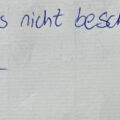 s nicht besch